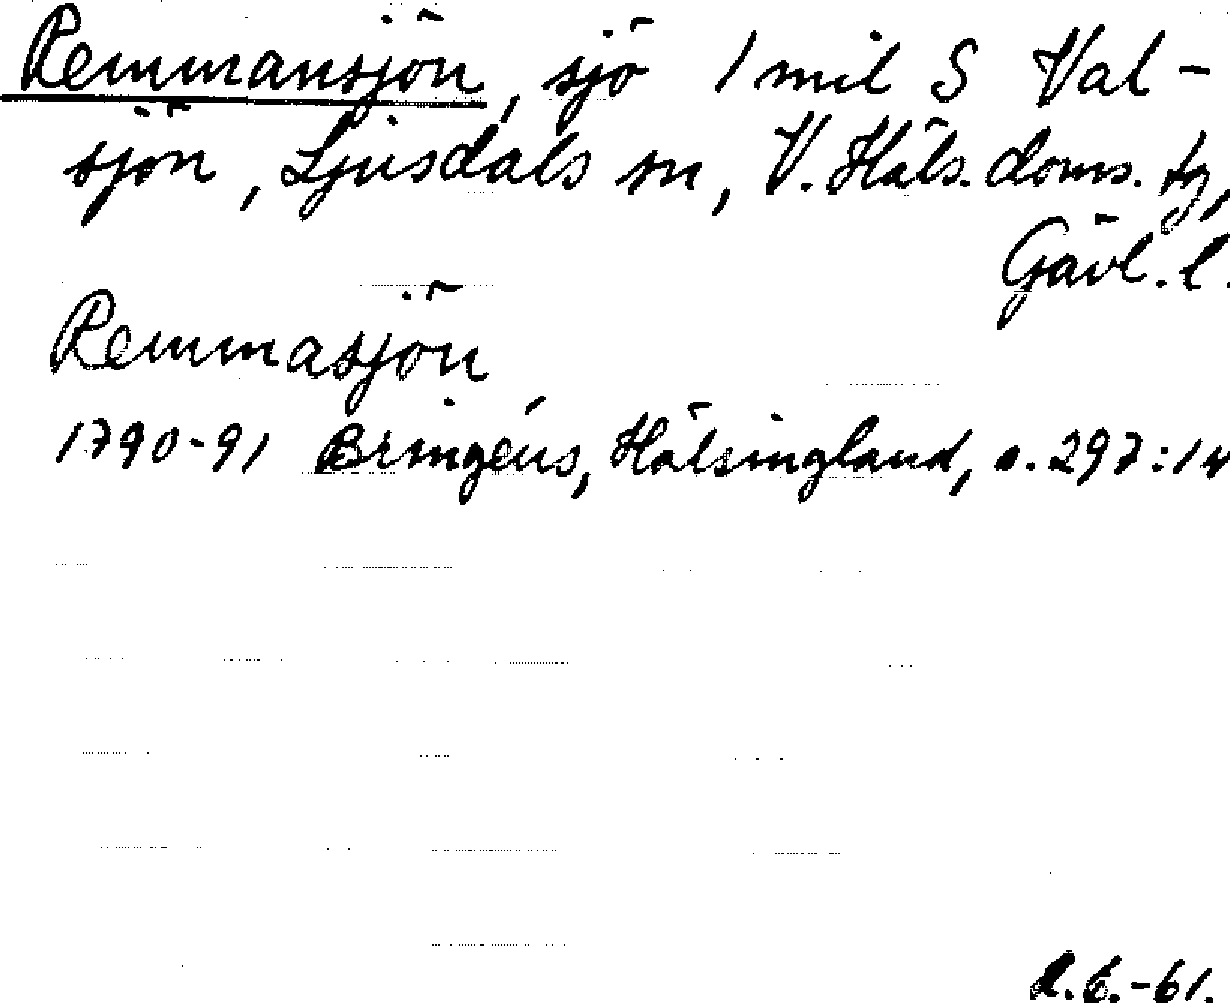 Remmansjön, sjö 1 mil S Val-
sjön, Ljusdals sn, V. Häls. doms. tg,
Gävl. l.
Remmasjön
1790-91 Bringéus, Hälsingland, s. 297:14
R.E.-61.